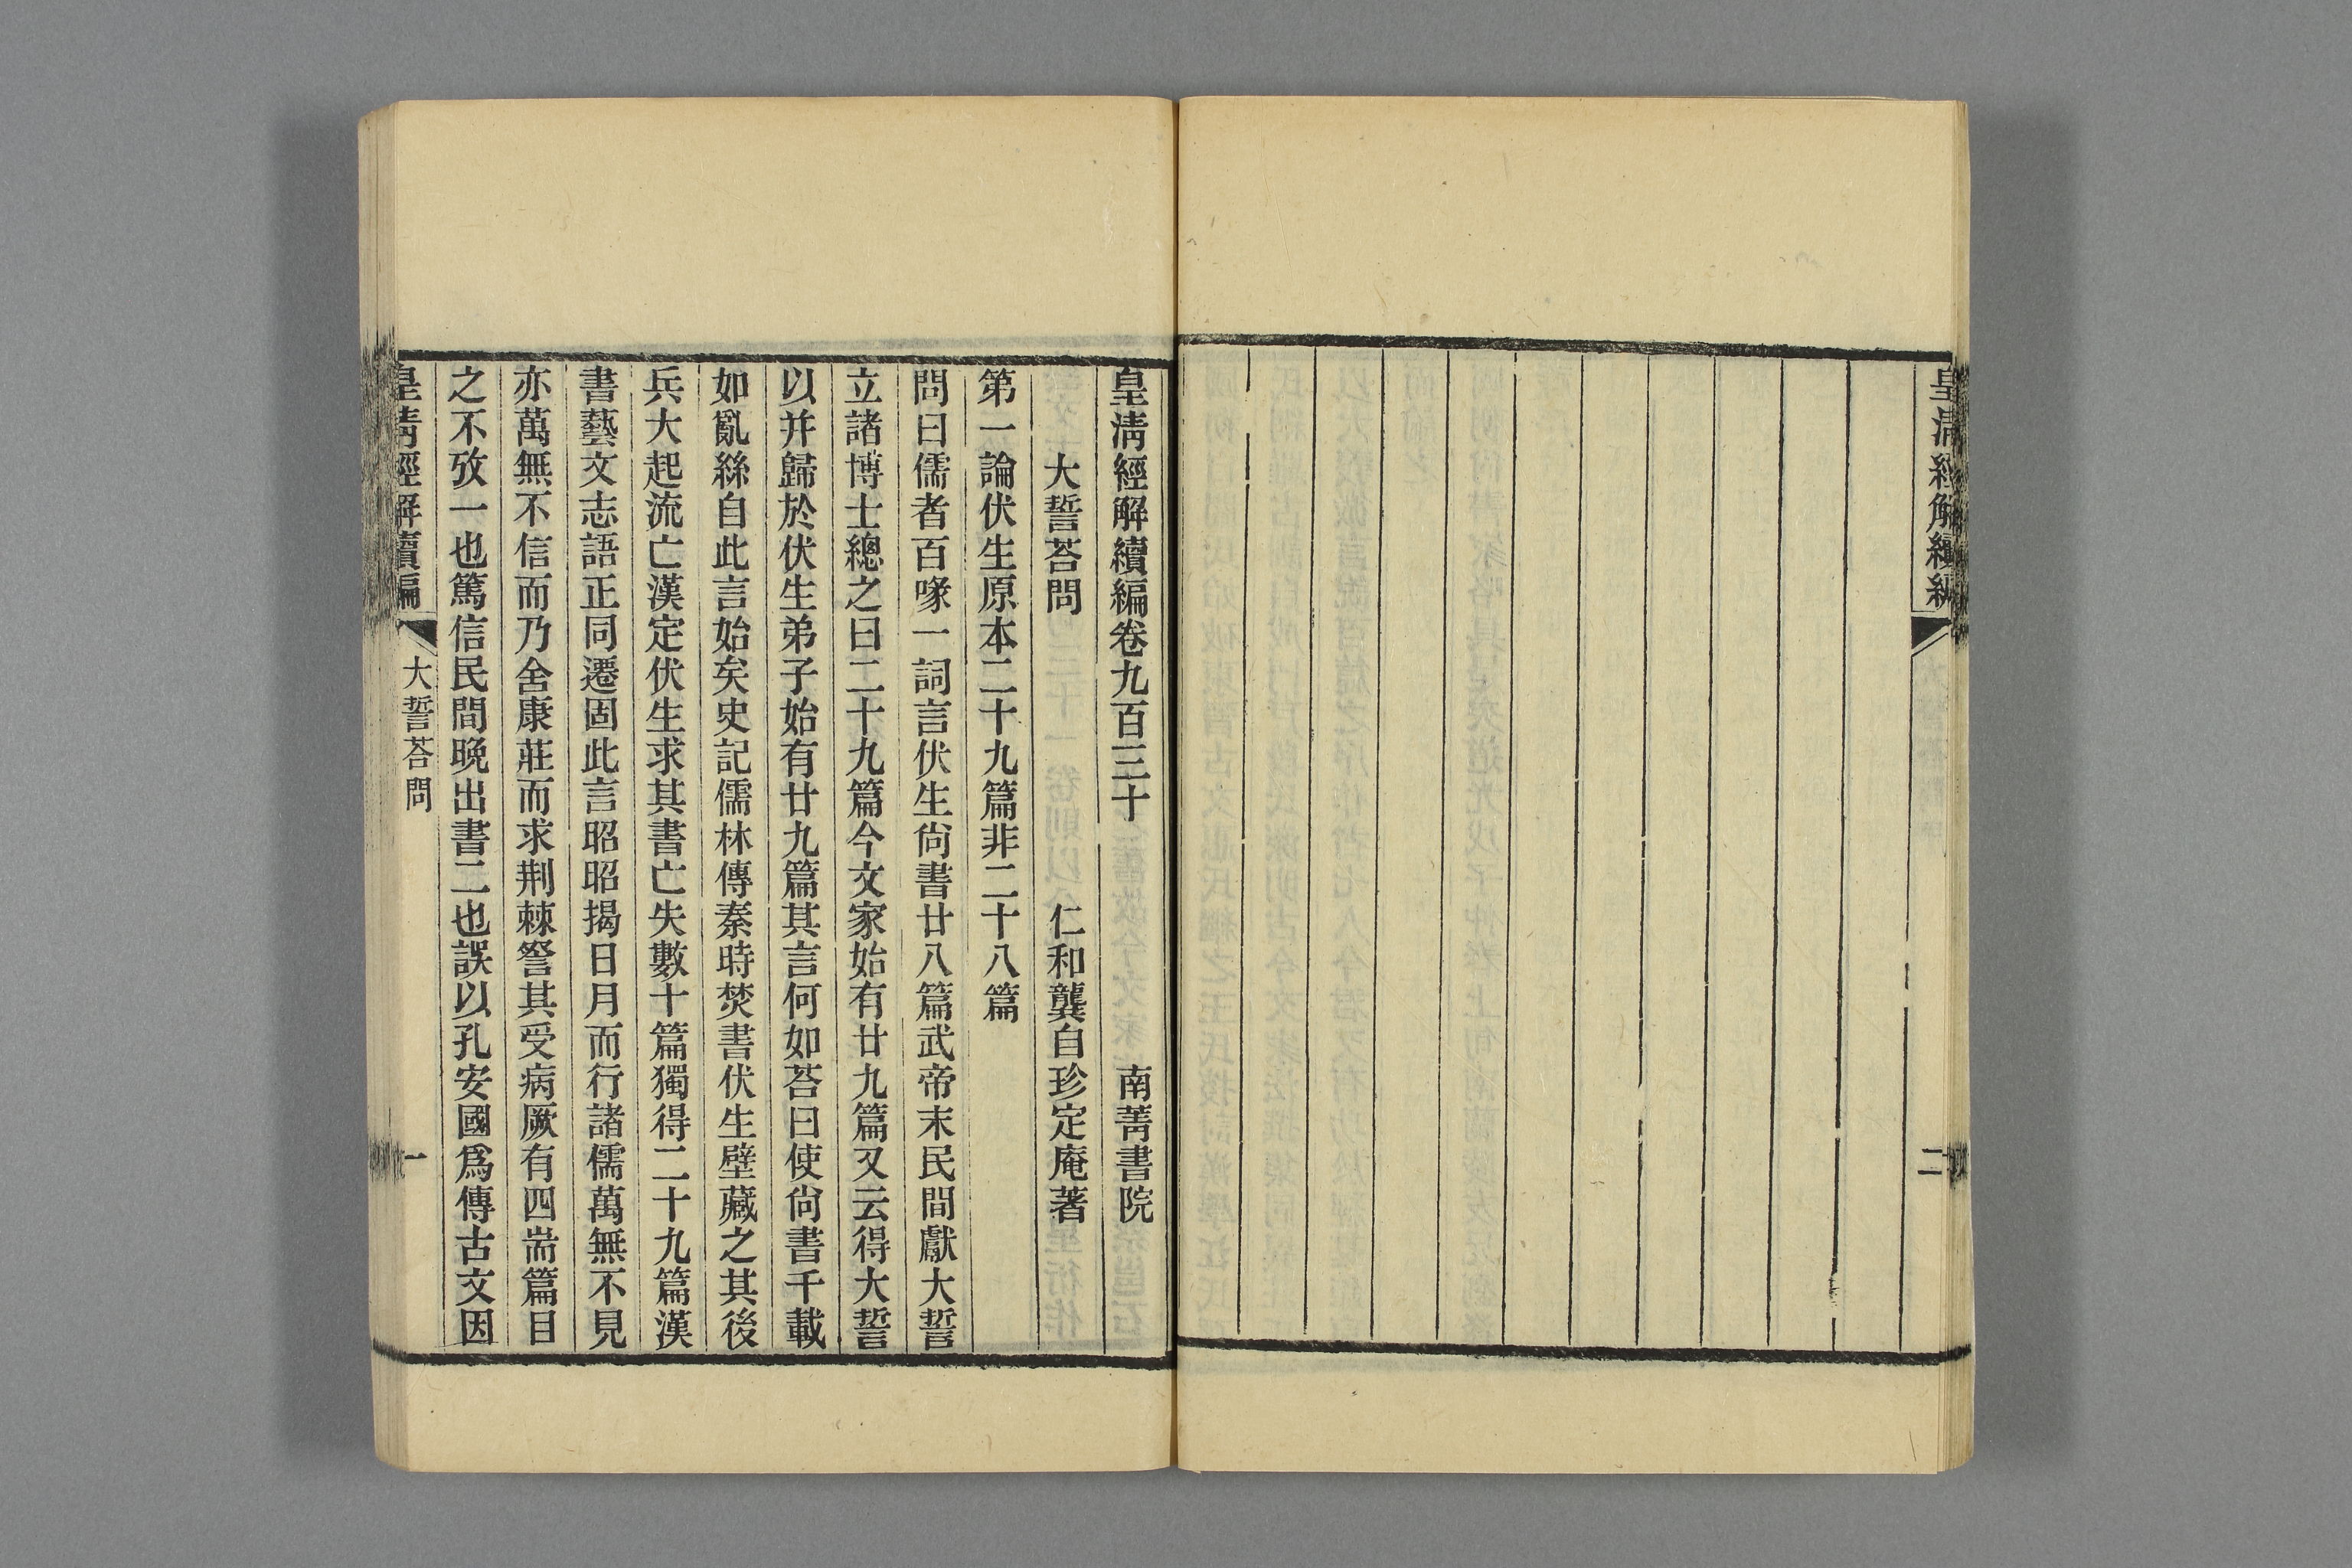 皇清經解續編
二
皇清經解續編卷九百三十 南菁書院
大誓荅問 仁和龔自珍定庵著
第一論伏生原本二十九篇非二十八篇
問曰儒者百喙一詞言伏生尙書廿八篇武帝末民間獻大誓
立諸博士總之曰二十九篇今文家始有廿九篇又云得大誓
以并歸於伏生弟子始有廿九篇其言何如荅曰使尙書千載
如亂絲自此言始矣史記儒林傳秦時焚書伏生壁藏之其後
兵大起流亡漢定伏生求其書亡失數十篇獨得二十九篇漢
書藝文志語正同遷固此言昭昭揭日月而行諸儒萬無不見
亦萬無不信而乃舍康莊而求荆棘詧其受病厥有四耑篇目
之不攷一也篤信民間晚出書二也誤以孔安國爲傳古文因
皇清經解續編
大誓荅問
一